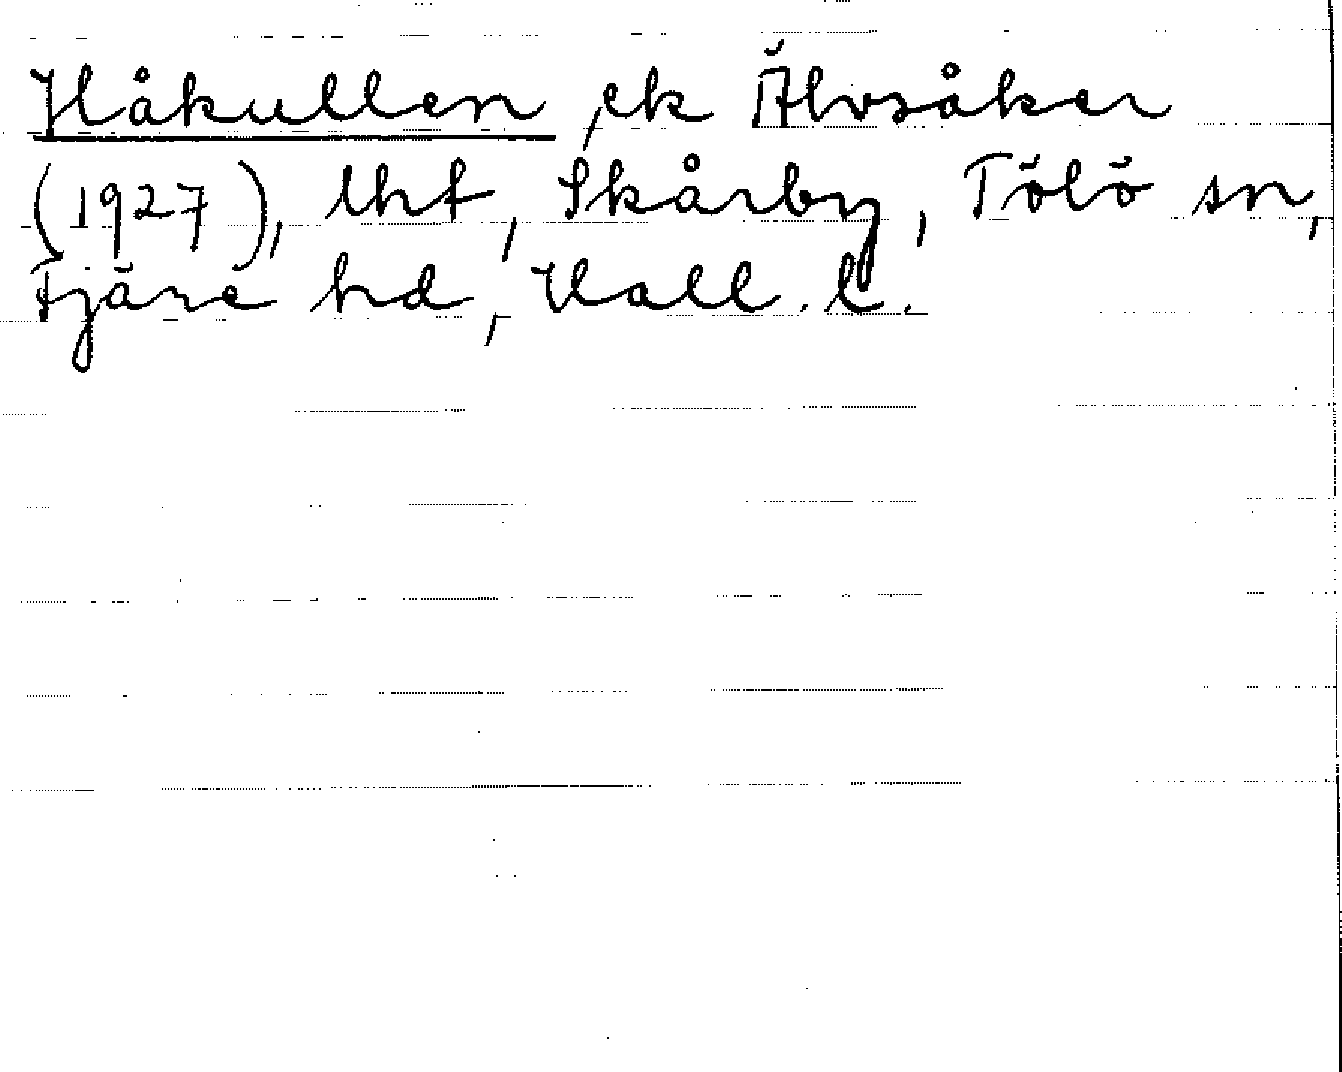 Håkullen, ek Älvsåker
(1927), lht, Skårby, Tölö sn,
Fjäre hd, Hall. l.